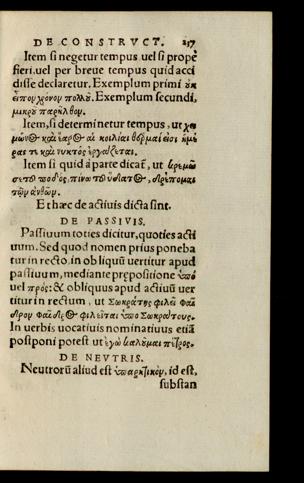 DE CONSTRVCT. 217
Item si negetur tempus uel si propè
fieri, uel per breue tempus quid acci
disse declaretur. Exemplum primi οὐκ
εἶπον χρόνον πολλοῦ. Exemplum secundi,
μικροῦ παρῆλθον.
Item, si determinetur tempus, ut χει
μῶνος καὶ ἔαρος αἱ κοιλίαι θερμαὶ εἰσι
καὶ νυκτὸς ἐργάζεται.
Item si quid à parte dicat̃, ut
ποδὸς, πίνω τοῦ ὕδατος, δρέπομαι
τῶν ἀνθῶν.
Et hæc de actiuis dicta sint.
DE PASSIVIS.
Passiuum toties dicitur, quoties acti
uum. Sed quod nomen prius poneba
tur in recto, in obliquũ uertitur apud
passiuum, mediante præpositione ὑπὸ
uel πρός: & obliquus apud actiuũ uer
titur in rectum, ut Σωκράτης φιλεῖ Φαῖ
δρον Φαῖδρος φιλεῖται ὑπὸ Σωκράτους.
In uerbis uocatiuis nominatiuus etiã
postponi potest ut ἐγὼ καλοῦμαι πέτρος.
DE NEVTRIS.
Neutrorũ aliud est ὑπαρκτικὸν, id est,
substan